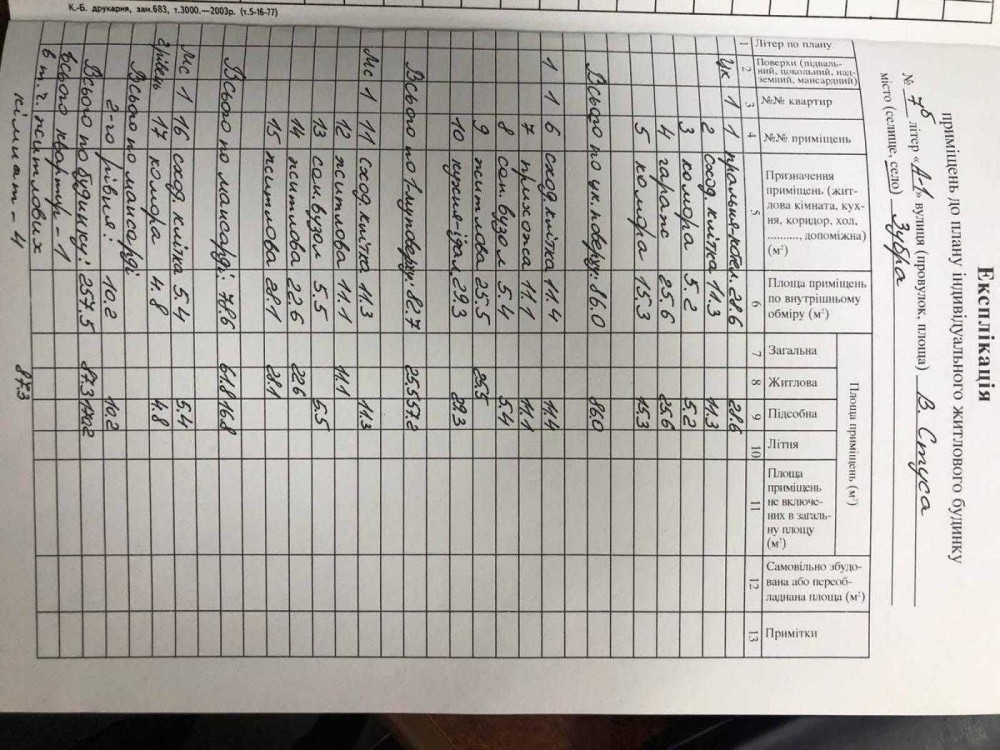 К.-Б. друкарня, зам.683, т.3000.—2003р. (т.5-16-77)
Експлікація
приміщень до плану індивідуального житлового будинку
№ 7б літер «А-1» вулиця (провулок, площа) В. Стуса
місто (селище, село) Зубра
Літер по плану
Поверхи (підвальний, цокольний, надземний, мансардний)
№№ квартир
№№ приміщень
Призначення приміщень (житлова кімната, кухня, коридор, хол, .........., допоміжна) (м²)
Площа приміщень по внутрішньому обміру (м²)
Площа приміщень (м²)
Загальна
Житлова
Підсобна
Літня
Площа приміщень не включених в загальну площу (м²)
Самовільно збудована або переобладнана площа (м²)
Примітки
1 2 3 4 5 6 7 8 9 10 11 12 13
Цк 1 1 пральня-котел. 28.6 28.6
2 сход. клітка 11.3 11.3
3 комора 5.2 5.2
4 гараж 25.6 25.6
5 комора 15.3 15.3
Всього по цк. поверху: 86.0 86.0
1 1 6 сход. клітка 11.4 11.4
7 прихожа 11.1 11.1
8 сан. вузол 5.4 5.4
9 житлова 25.5 25.5
10 кухня-їдал. 29.3 29.3
Всього по 1-му поверху: 82.7 25.5 57.2
Мс 1 11 сход. клітка 11.3 11.3
12 житлова 11.1 11.1
13 сан. вузол 5.5 5.5
14 житлова 22.6 22.6
15 житлова 28.1 28.1
Всього по мансарді: 78.6 61.8 16.8
Мс 1 16 сход. клітка 5.4 5.4
2 рівень 17 комора 4.8 4.8
Всього по мансарді
2-го рівня: 10.2 10.2
Всього по будинку: 257.5 87.3 170.2
Всього квартир - 1
в т. ч. житлових
кімнат - 4 87.3